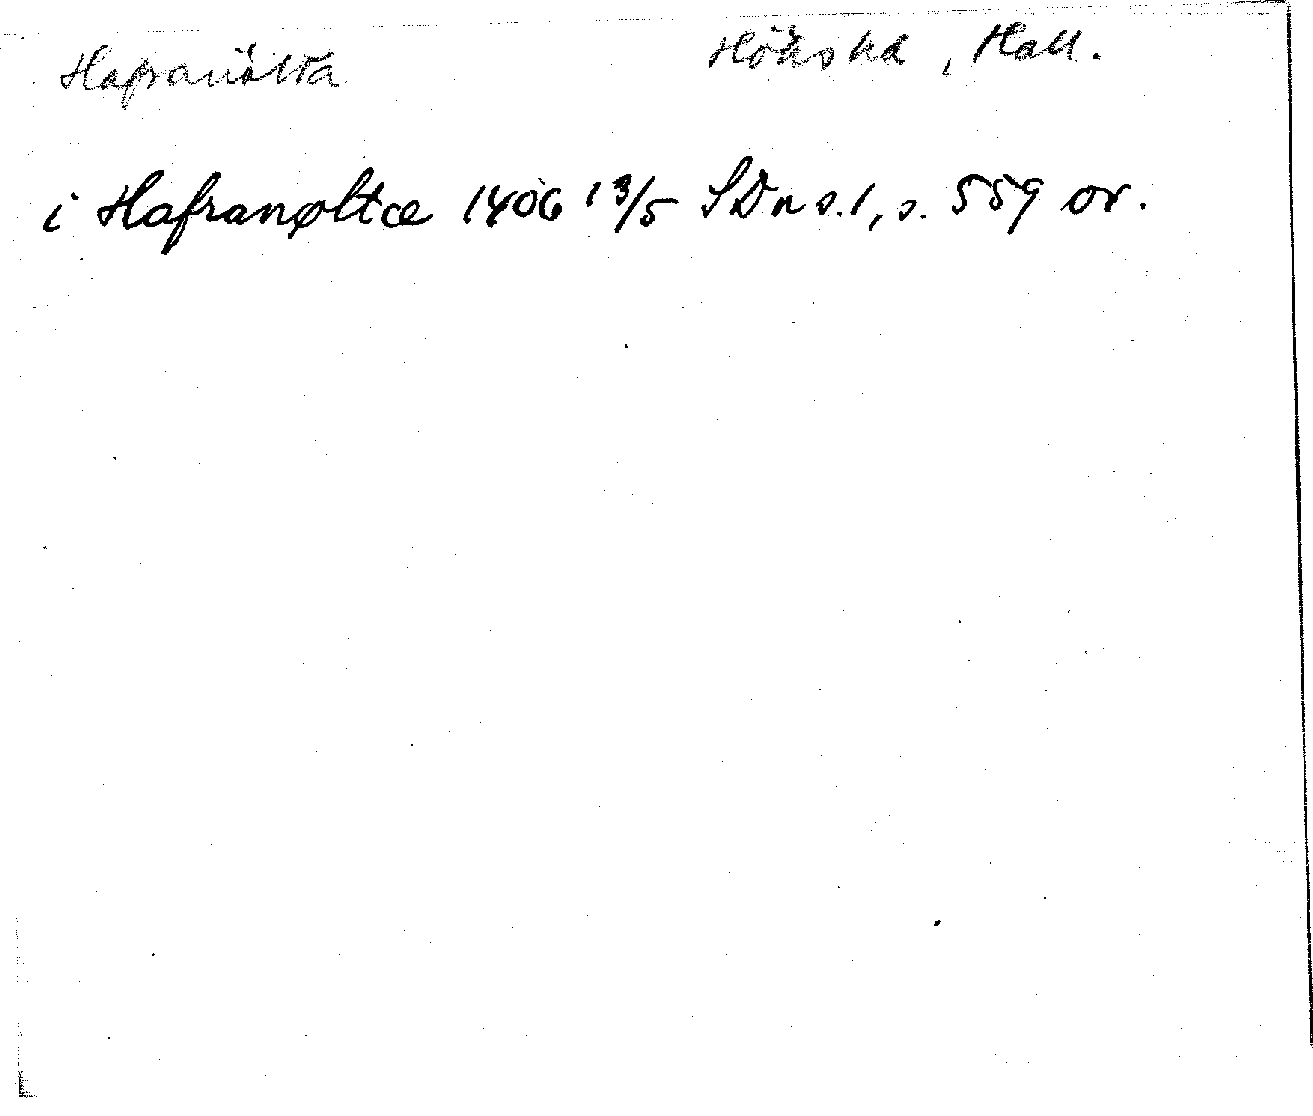 Hafranölta Höks hd, Hall.
i Hafranøltæ 1406 13/5 SDns. 1, s. 559 or.